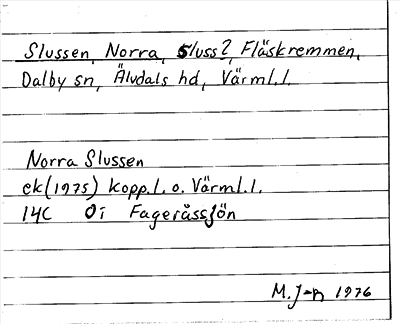 Slussen, Norra, sluss?, Fläskremmen,
Dalby sn, Älvdals hd, Värml.l.
Norra Slussen
ek(1975) kopp.l. o. Värml.l.
14C Öi Fageråssjön
M. J-n 1976